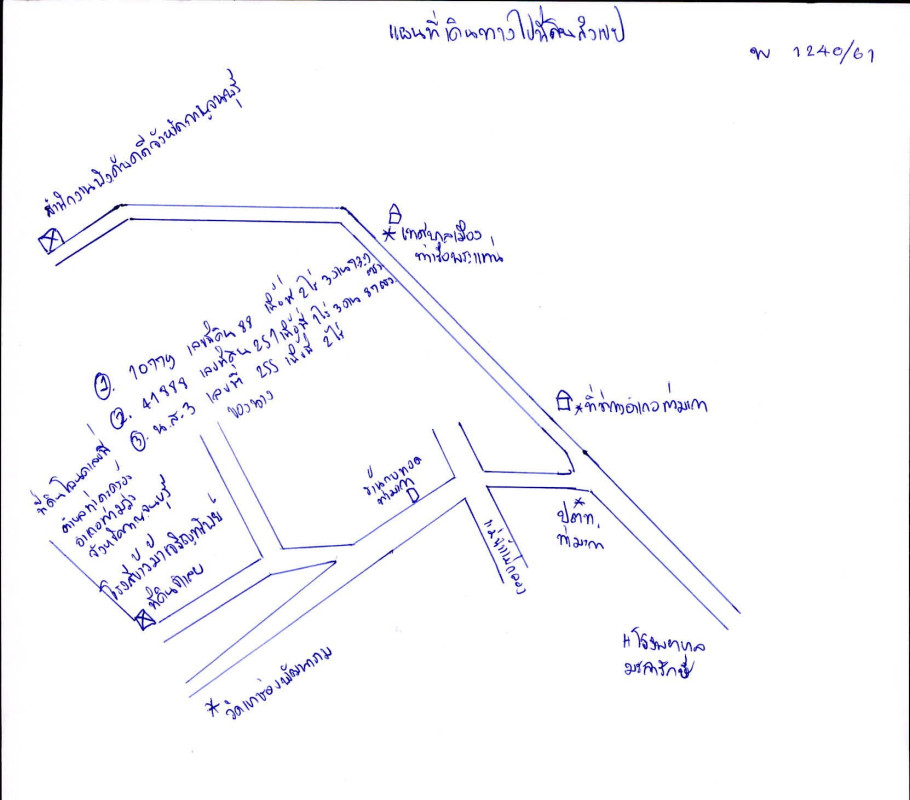 แผนที่เดินทางไปที่ดินสังเขป
พ 1240/61
สำนักงานบังคับคดีจังหวัดกาญจนบุรี
* เทศบาลเมือง
ท่าเรือพระแท่น
①. 10779 เลขที่ดิน 88 เนื้อที่ 2 ไร่ 3 งาน
②. 41888 เลขที่ดิน 257 เนื้อที่ 1 ไร่ 3 งาน 87 ตรว.
③. น.ส.3 เลขที่ 255 เนื้อที่ 2 ไร่
ของนาง
* ที่ว่าการอำเภอท่ามะกา
ที่ดินโฉนดเลขที่
ตำบลท่าตะคร้อ
อำเภอท่าม่วง
จังหวัดกาญจนบุรี
โรงสีข้าวมาเจริญทรัพย์
ที่ดินจำเลย
ท่ามะกา
แม่น้ำแม่กลอง
*
ปตท.
ท่ามะกา
H โรงพยาบาล
มะการักษ์
* วัดเขาช่องพัฒนาราม